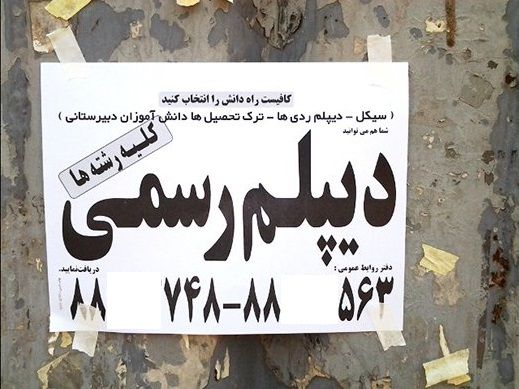 کافیست راه دانش را انتخاب کنید
( سیکل - دیپلم ردی ها - ترک تحصیل ها دانش آموزان دبیرستانی )
شما هم می توانید
کلیه رشته ها
دیپلم رسمی
دفتر روابط عمومی :
دریافت نمایید.
۵۶۳ ۷۴۸-۸۸ ۸۸